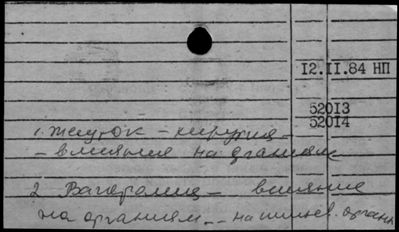 12.II.84 НП
52013
52014
1. Желудок – хирургия –
– влияния на организм
2. Ваготомия – влияние
на организм – на пищев. органы